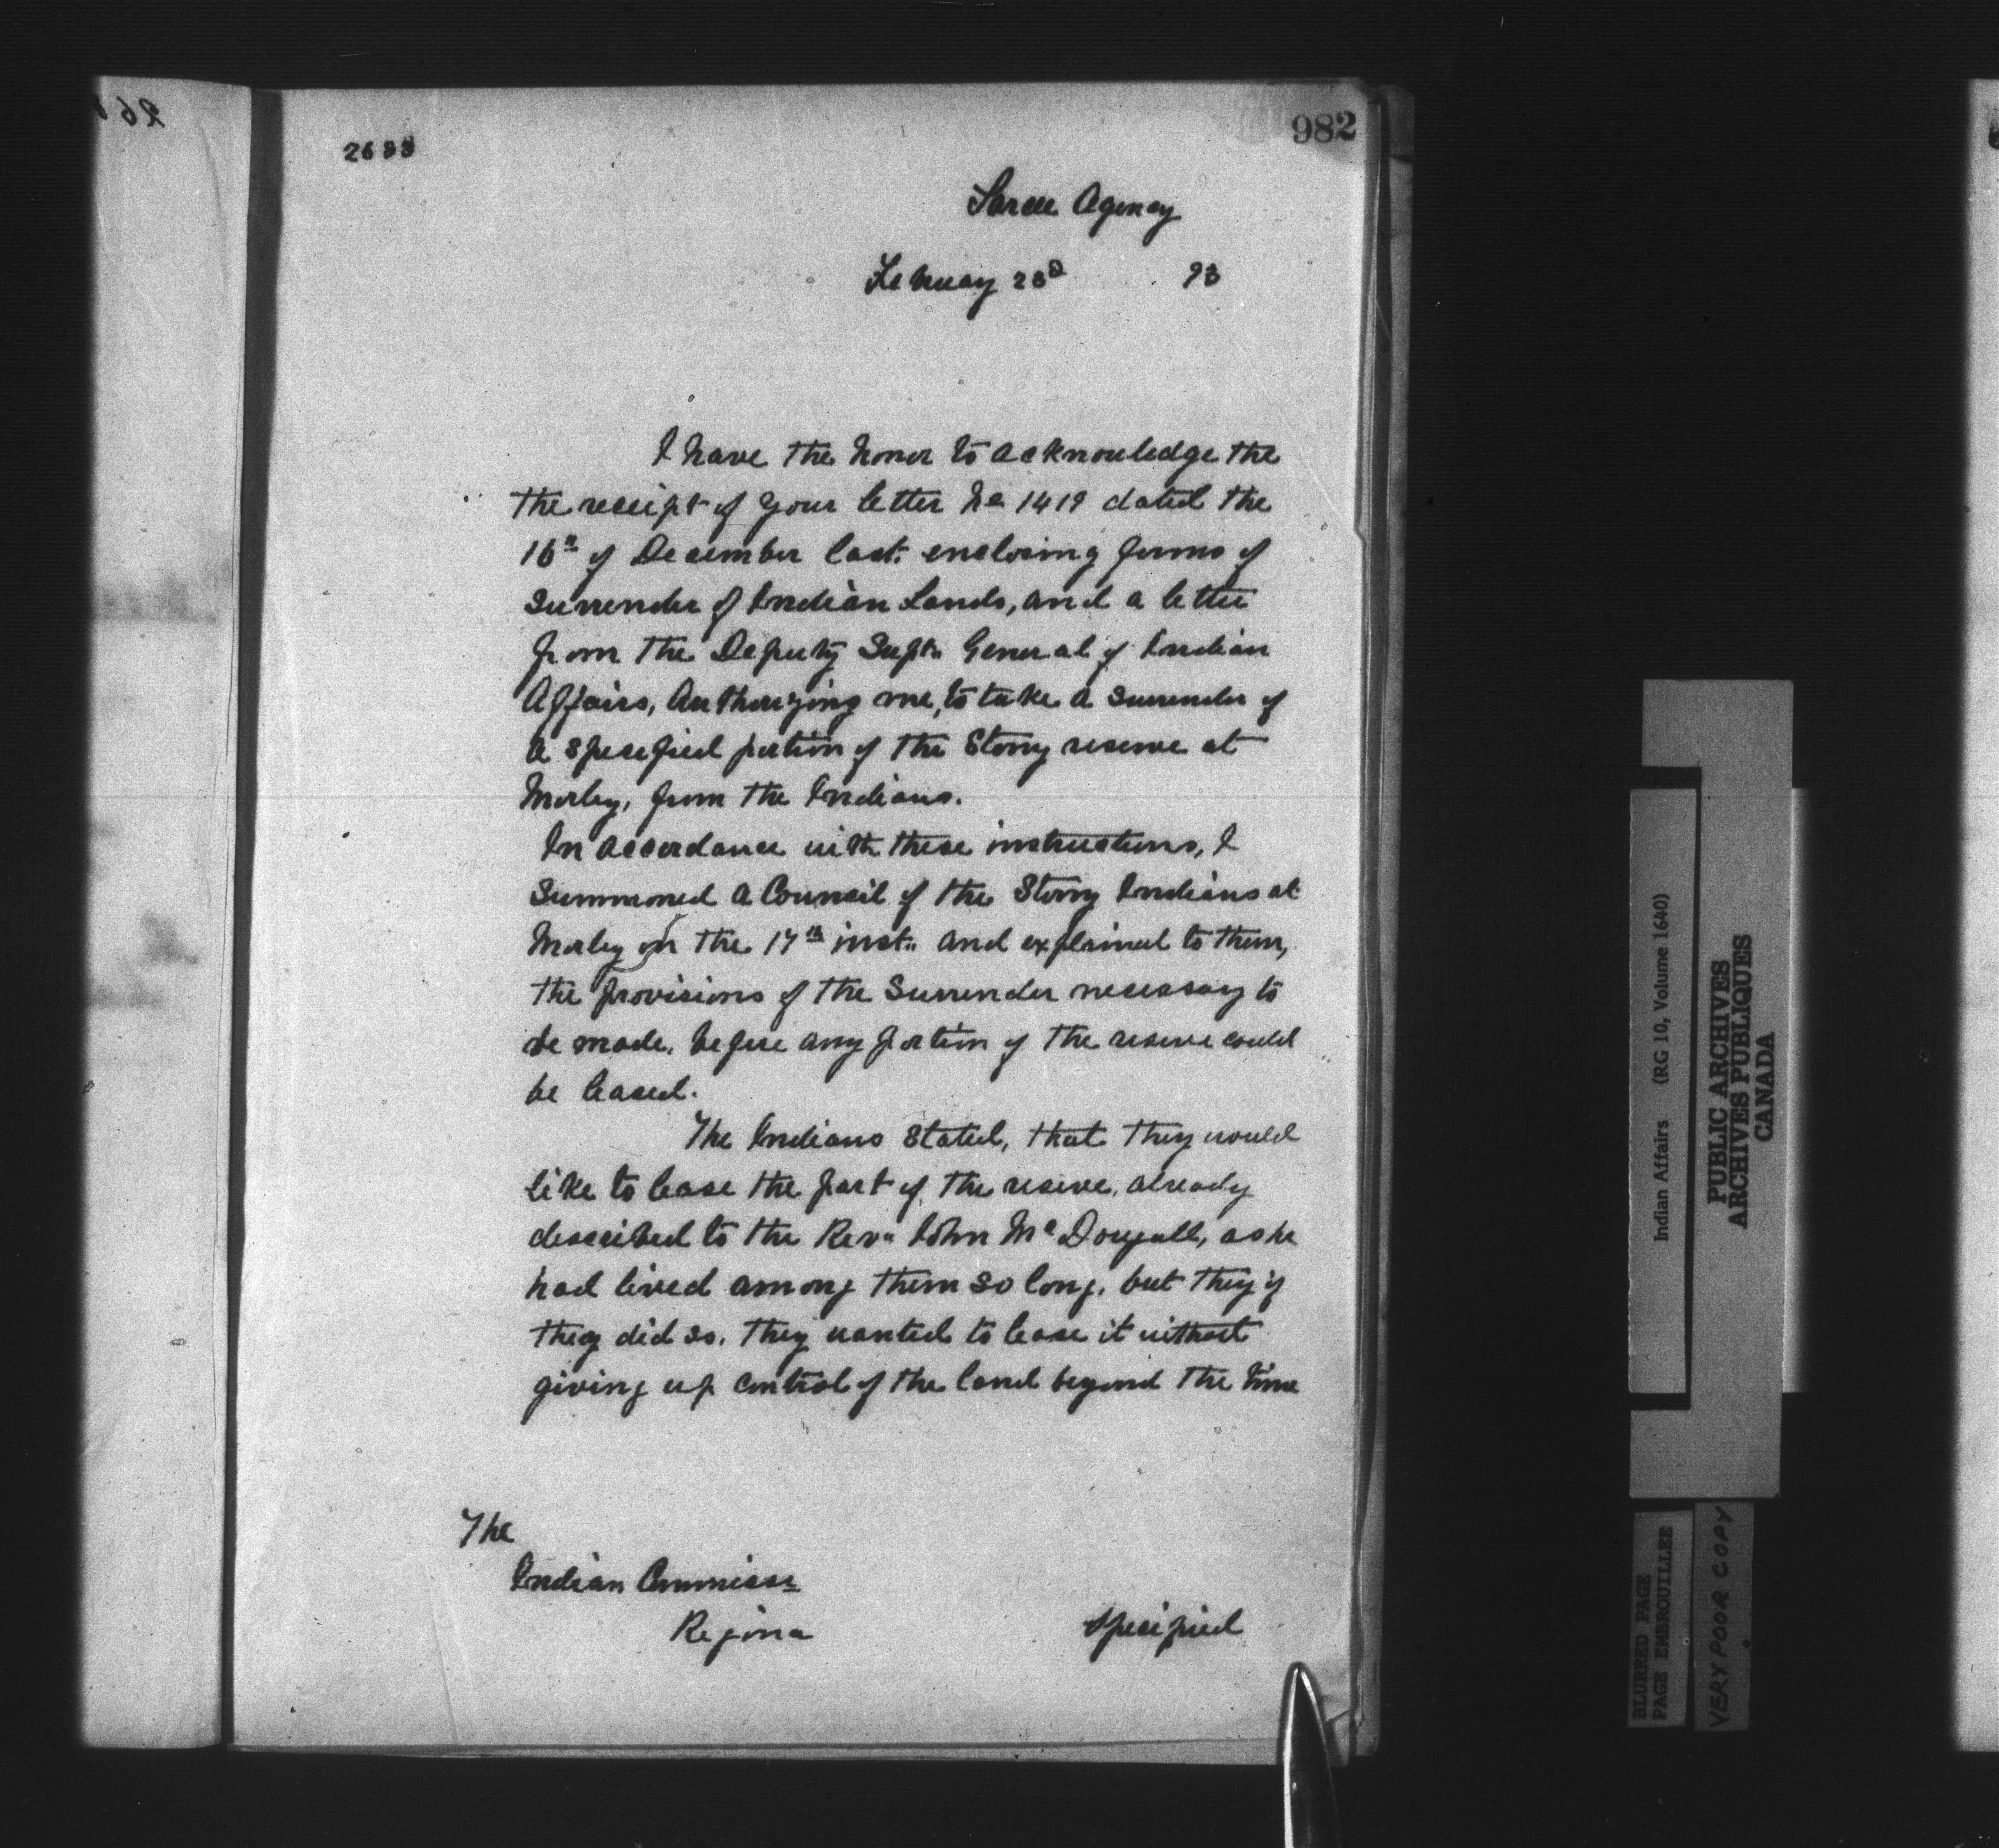 982
Sarcee Agency
February 23d 93
I have the honor to acknowledge the
the receipt of your letter No 1419 dated the
16th of December last. enclosing forms of
Surrender of Indian Lands, and a letter
from the Deputy Supt. General of Indian
Affairs, Authorizing me, to take a surrender of
a specified portion of the Stony reserve at
Morley, from the Indians.
In accordance with these instructions, I
Summoned a Council of the Stony Indians at
Morley on the 17th inst. and explained to them,
the provisions of the Surrender necessary to
be made, before any portion of the reserve could
be leased.
The Indians Stated, that they would
like to lease the part of the reserve, already
described to the Revd John McDougall, as he
had lived among them so long, but they if
they did so. they wanted to lease it without
giving up control of the land beyond the time
The
Indian Commissr
Regina
Specified
Indian Affairs (RG 10, Volume 1640)
PUBLIC ARCHIVES
ARCHIVES PUBLIQUES
CANADA
BLURRED PAGE
PAGE EMBROUILLEE
VERY POOR COPY